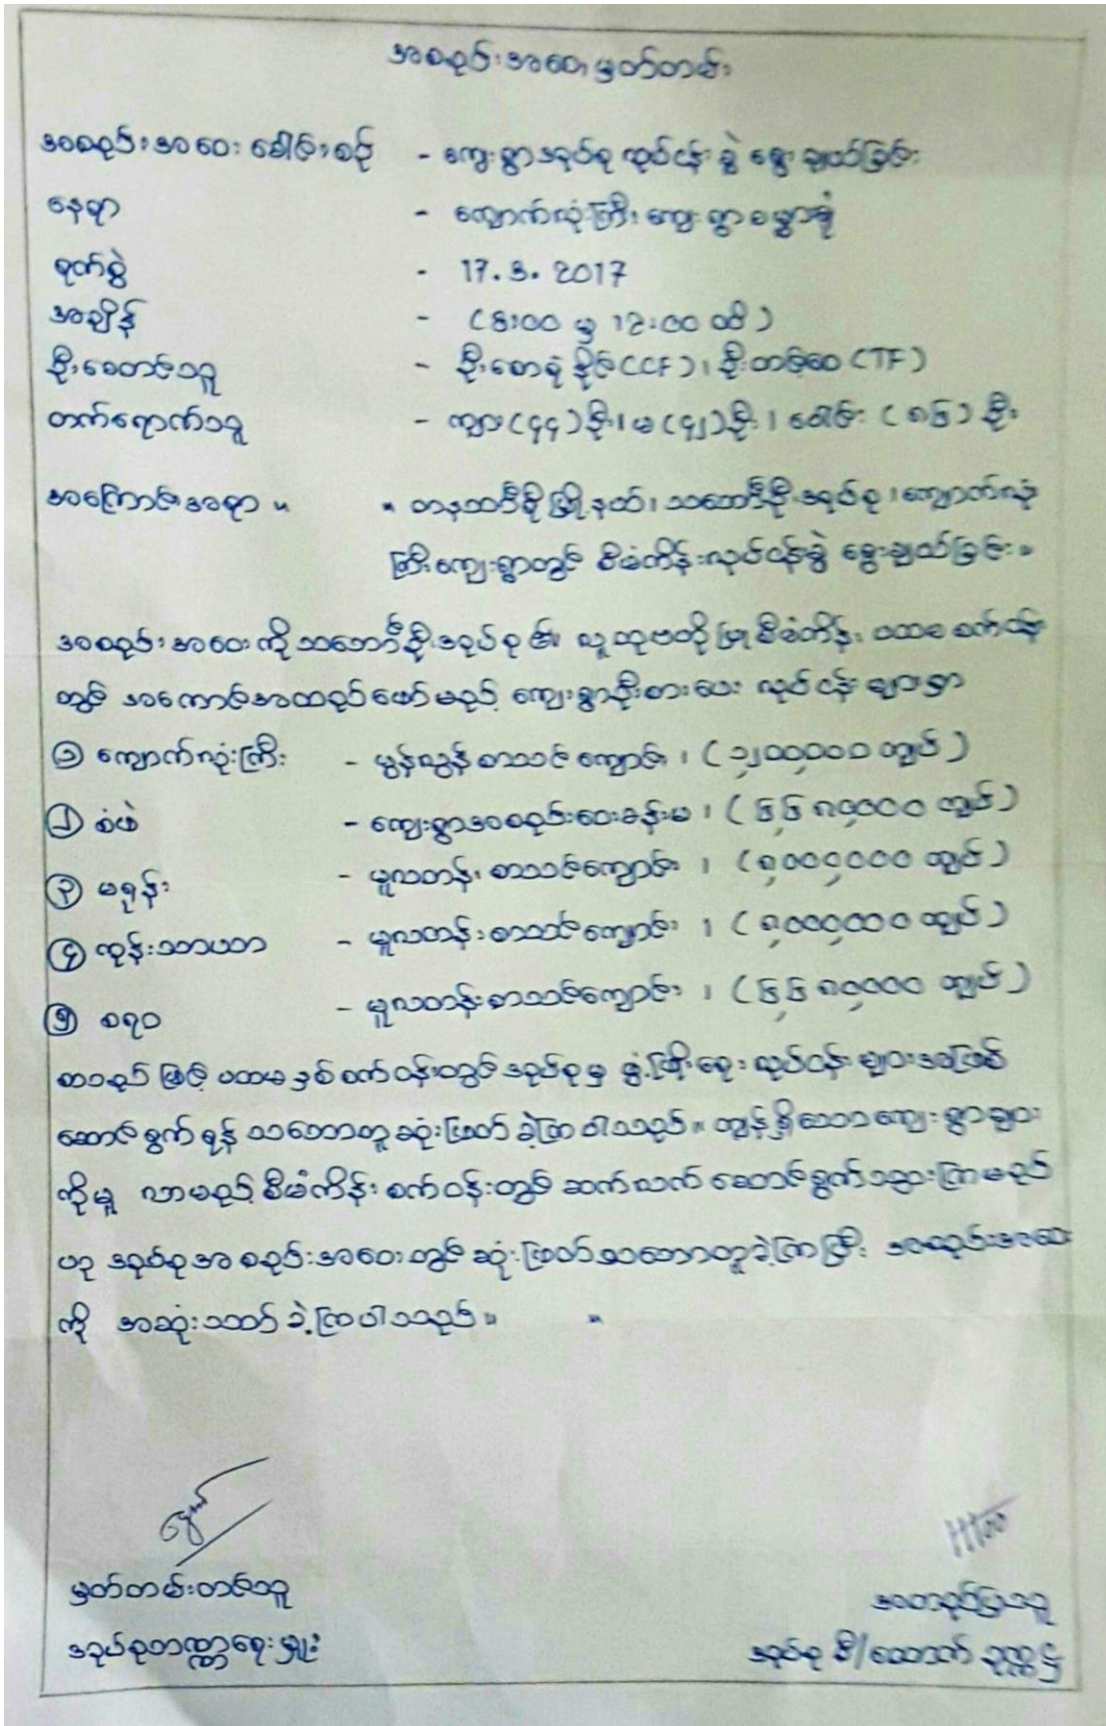 အစည်းအဝေးမှတ်တမ်း
အစည်းအဝေးခေါင်းစဉ် - ကျေးရွာအုပ်စုလုပ်ငန်းခွဲ ရွေးချယ်ခြင်း
နေရာ - ကျောက်လုံးကြီးကျေးရွာ
ရက်စွဲ - 17.3.2017
အချိန် - (8:00 မှ 12:00 ထိ)
ဦးစောင်သူ - ဦးစောရဲနိုင် (CCF)၊ ဦးတင့်ဝေ (TF)
တက်ရောက်သူ - ကျား(၄၄)ဦး၊ မ(၄၂)ဦး၊ ပေါင်း (၈၆)ဦး
အကြောင်းအရာ။ ။ တနင်္သာရီမြို့နယ်၊ သဘော်ဦးအုပ်စု၊ ကျောက်လုံး
ကြီးကျေးရွာတွင် စီမံကိန်းလုပ်ငန်းခွဲ ရွေးချယ်ခြင်း။
အစည်းအဝေးကို သဘော်ဦးအုပ်စု၏ လူထုဗဟိုပြုစီမံကိန်း ပထမစက်ဝန်း
တွင် အကောင်အထည်ဖော်မည့် ကျေးရွာဦးစားပေး လုပ်ငန်းများမှာ
၁ ကျောက်လုံးကြီး - မူလွန်စာသင်ကျောင်း၊ (၁၂၀၀၀၀၀၀ ကျပ်)
၂ စံဖဲ - ကျေးရွာအစည်းဝေးခန်းမ၊ (၆၆၈၀၀၀၀ ကျပ်)
၃ မရန်း - မူလတန်းစာသင်ကျောင်း၊ (၈၀၀၀၀၀၀ ကျပ်)
၄ ကုန်းသာယာ - မူလတန်းစာသင်ကျောင်း၊ (၈၀၀၀၀၀၀ ကျပ်)
၅ စရဝ - မူလတန်းစာသင်ကျောင်း၊ (၆၆၈၀၀၀၀ ကျပ်)
စာသည်ဖြင့် ပထမနှစ်စက်ဝန်းတွင် အုပ်စုမှ ဖွံ့ဖြိုးရေးလုပ်ငန်းများအဖြစ်
ဆောင်ရွက်ရန် သဘောတူဆုံးဖြတ်ခဲ့ကြပါသည်။ ကျန်ရှိသောကျေးရွာများ
ကိုမူ လာမည့်စီမံကိန်းစက်ဝန်းတွင် ဆက်လက်ဆောင်ရွက်သွားကြမည်
ဟု အုပ်စုအစည်းအဝေးတွင် ဆုံးဖြတ်သဘောတူခဲ့ကြပြီး အစည်းအဝေး
ကို အဆုံးသတ်ခဲ့ကြပါသည်။ ။
မှတ်တမ်းတင်သူ
အုပ်စုဘဏ္ဍာရေးမှူး
အတည်ပြုသူ
အုပ်စု စီ/ထောက် ဥက္ကဋ္ဌ